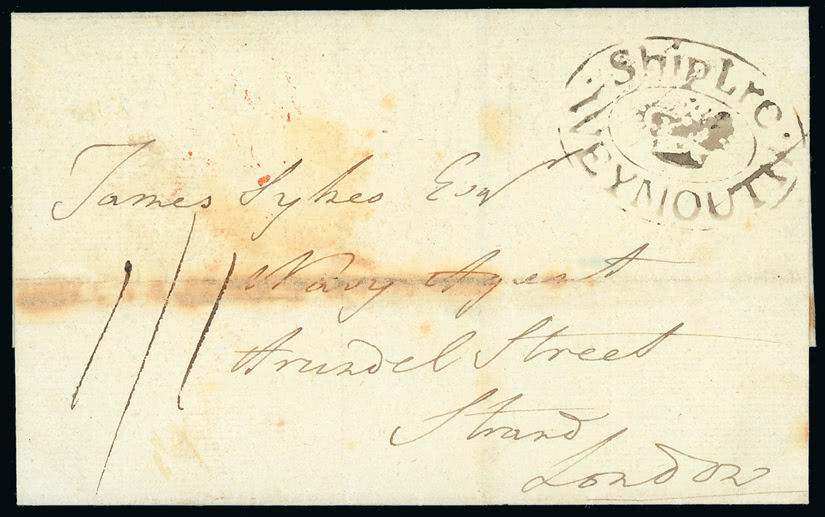 Ship Lre
WEYMOUTH
James Sykes Esqr
1/1
Navy Agent
Arundel Street
Strand
London